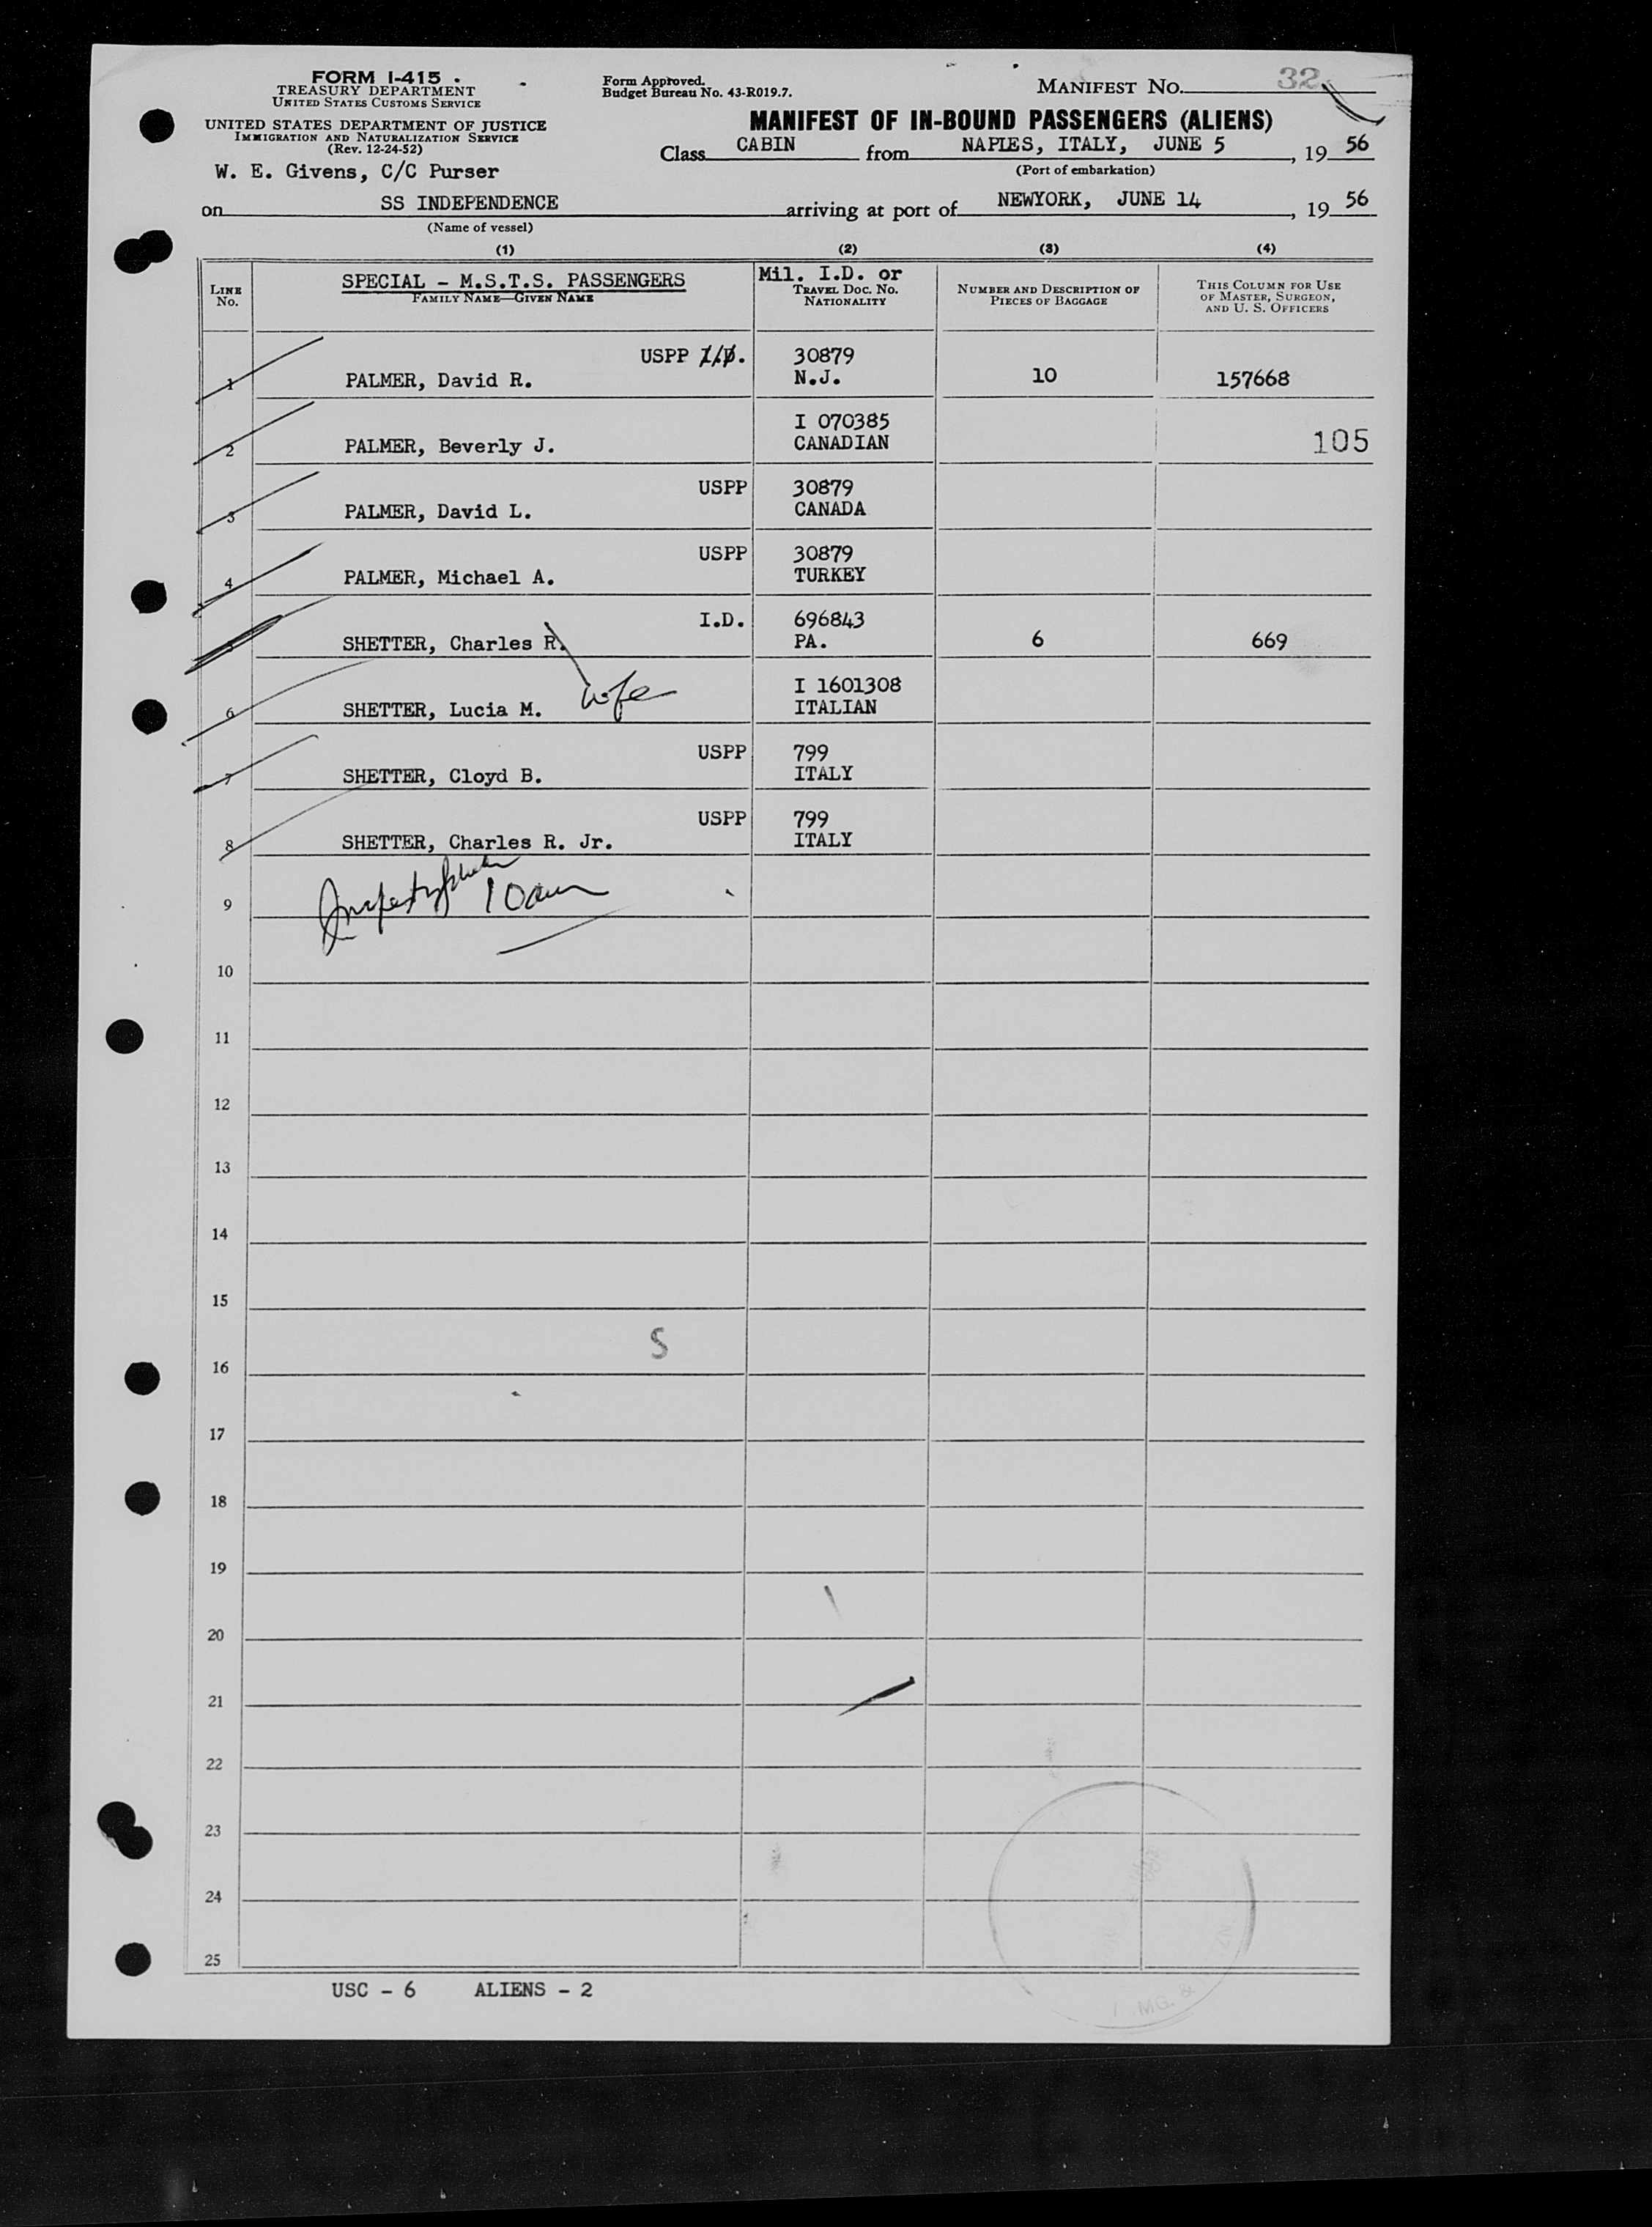 FORM I-415
TREASURY DEPARTMENT
UNITED STATES CUSTOMS SERVICE
UNITED STATES DEPARTMENT OF JUSTICE
IMMIGRATION AND NATURALIZATION SERVICE
(Rev. 12-24-52)
W. E. Givens, C/C Purser
Form Approved.
Budget Bureau No. 43-R019.7.
MANIFEST No. 32
MANIFEST OF IN-BOUND PASSENGERS (ALIENS)
Class CABIN from NAPLES, ITALY, JUNE 5, 19 56
(Port of embarkation)
on SS INDEPENDENCE arriving at port of NEWYORK, JUNE 14, 19 56
(Name of vessel)
(1) (2) (3) (4)
LINE No.
SPECIAL - M.S.T.S. PASSENGERS
FAMILY NAME—GIVEN NAME
Mil. I.D. or
TRAVEL DOC. No.
NATIONALITY
NUMBER AND DESCRIPTION OF
PIECES OF BAGGAGE
THIS COLUMN FOR USE
OF MASTER, SURGEON,
AND U. S. OFFICERS
USPP 30879
1 PALMER, David R. N.J. 10 157668
I 070385
2 PALMER, Beverly J. CANADIAN 105
USPP 30879
3 PALMER, David L. CANADA
USPP 30879
4 PALMER, Michael A. TURKEY
I.D. 696843
5 SHETTER, Charles R. PA. 6 669
I 1601308
6 SHETTER, Lucia M. wife ITALIAN
USPP 799
7 SHETTER, Cloyd B. ITALY
USPP 799
8 SHETTER, Charles R. Jr. ITALY
9 10am
10
11
12
13
14
15
S
16
17
18
19
20
21
22
23
24
25
USC - 6 ALIENS - 2